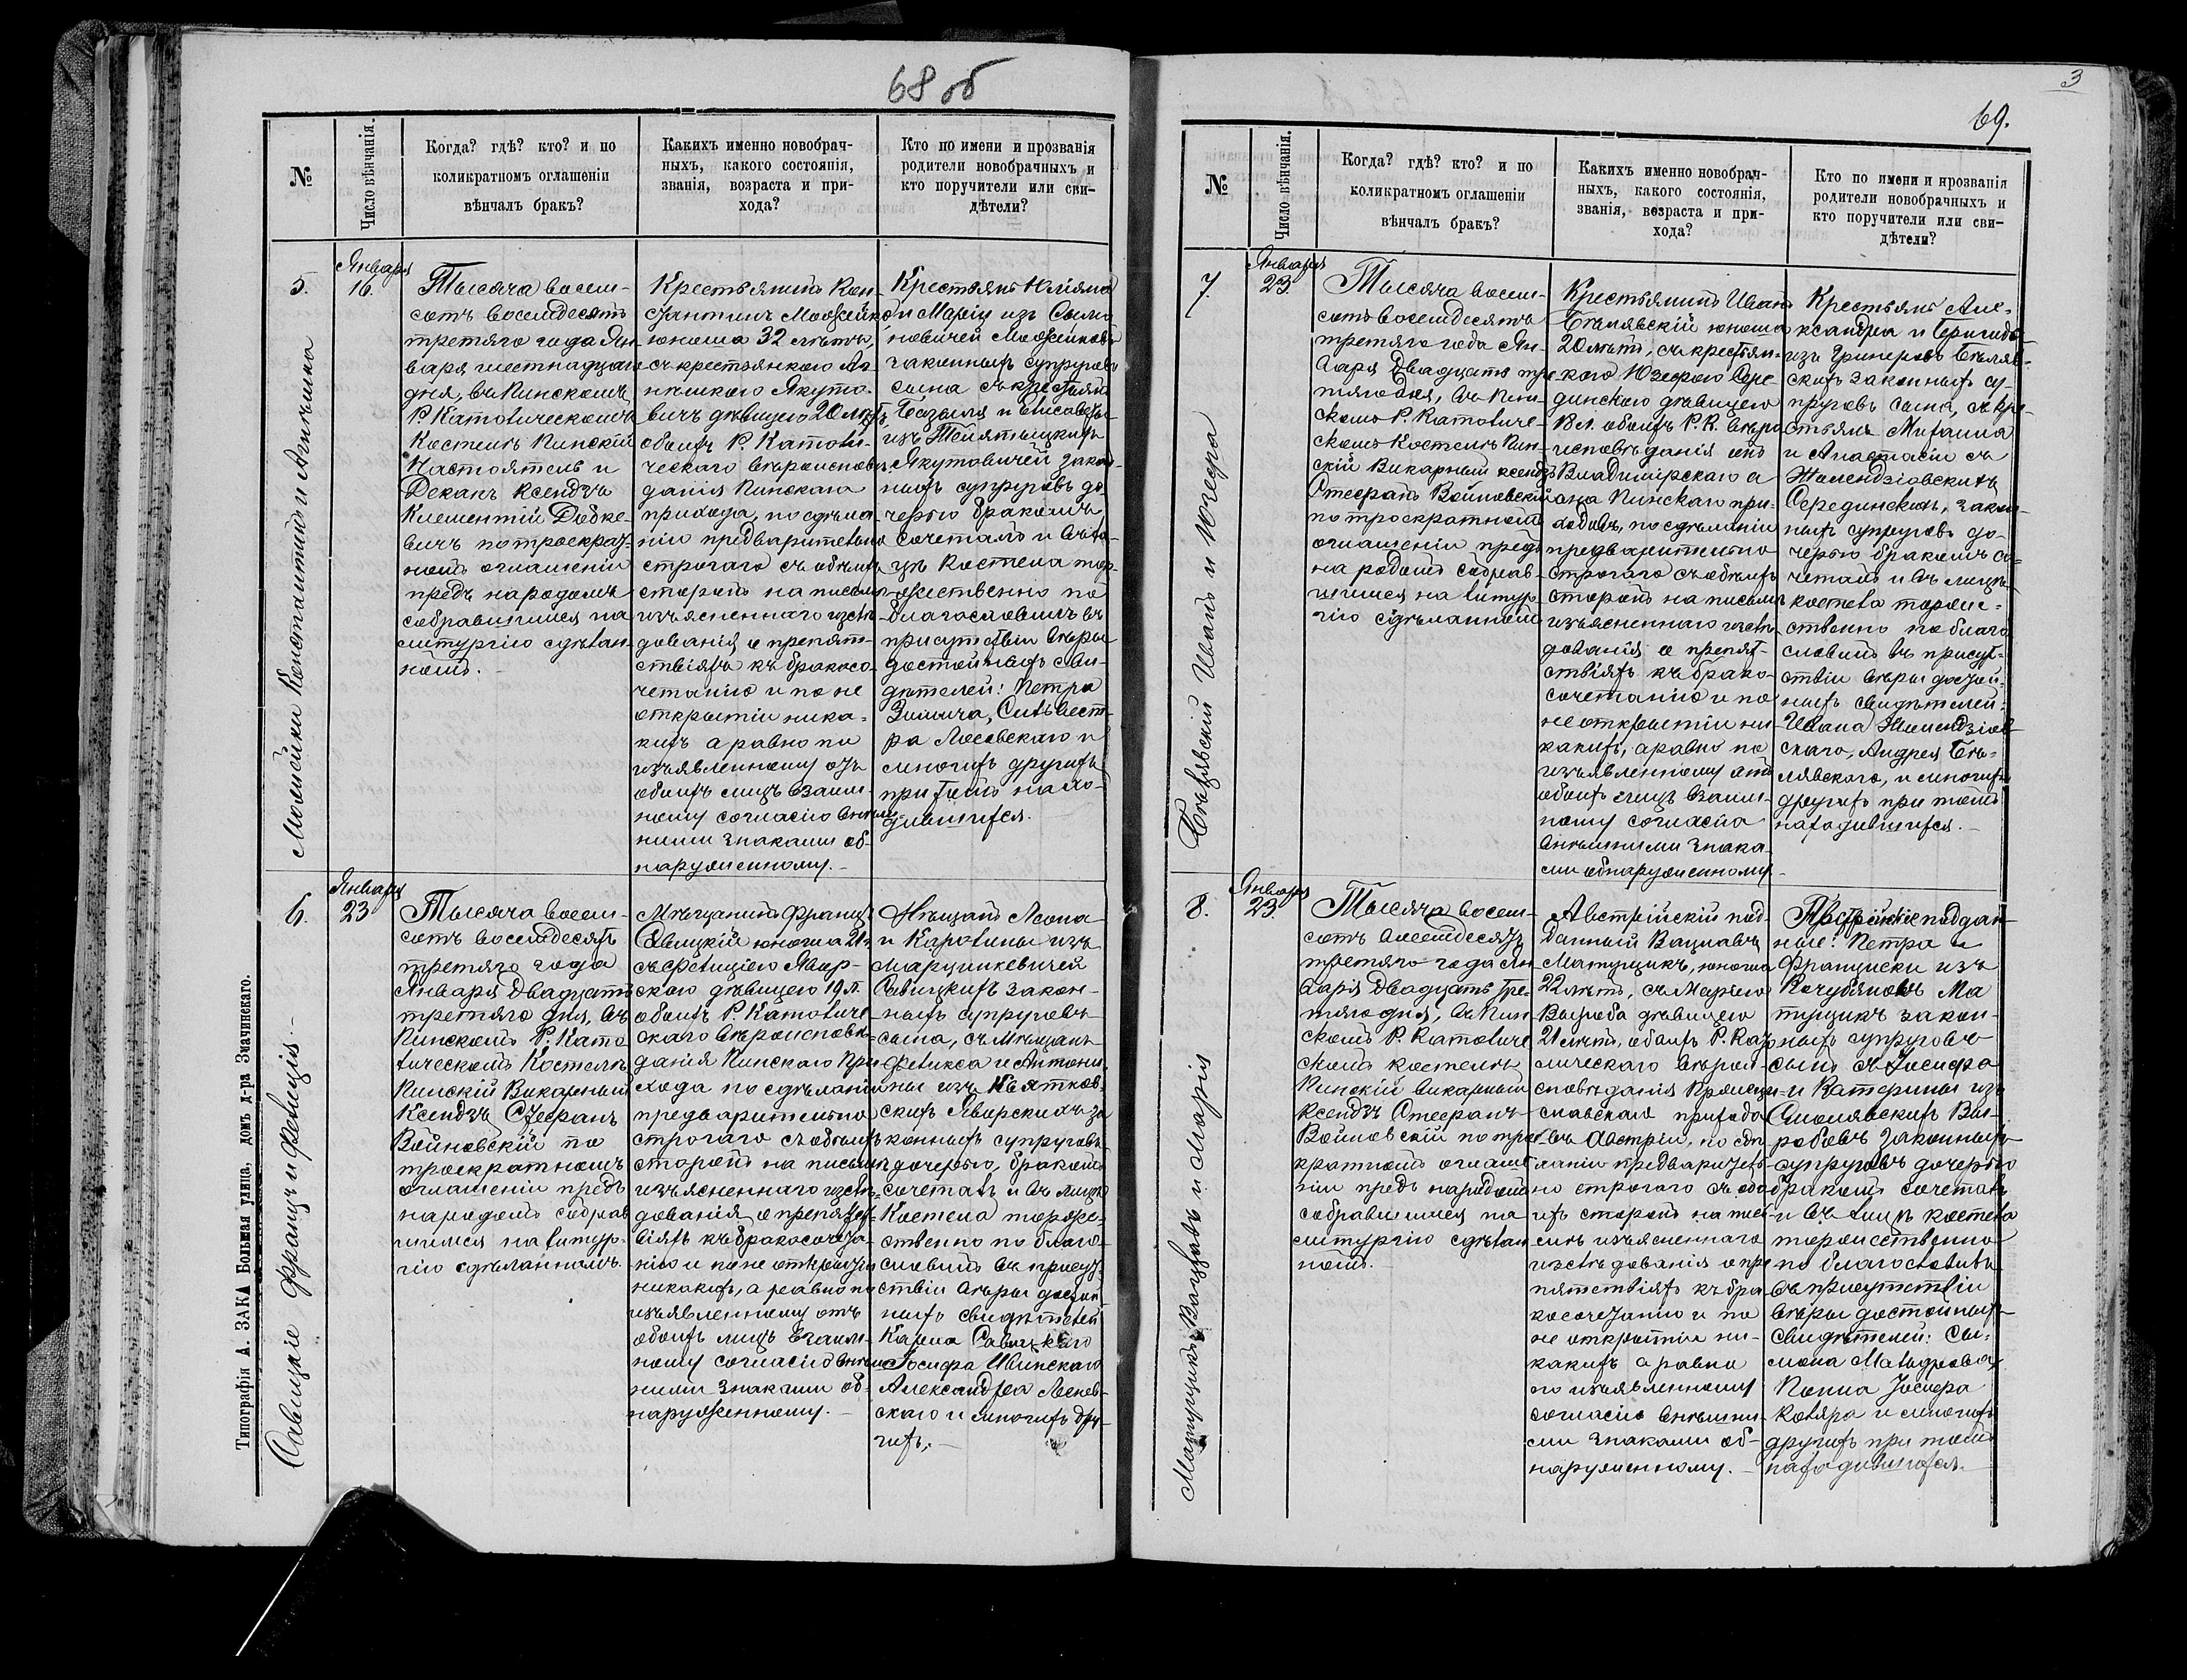 68 об
№
Число вѣнчанія.
Когда? гдѣ? кто? и по
коликратномъ оглашеніи
вѣнчалъ бракъ?
Какихъ именно новобрач-
ныхъ, какого состоянія,
званія, возраста и при-
хода?
Кто по имени и прозванія
родители новобрачныхъ и
кто поручители или сви-
дѣтели?
5.
Января
16.
Можейки Константинъ и Анѣлика
Тысяча восем-
сотъ восемдесятъ
третяго года Ян-
варя шестнадцаго
дня, въ Пинскомъ
Р. Католическомъ
Костелѣ Пинскій
Настоятель и
Деканъ Ксендзъ
Клементій
вичъ по троекрат-
номъ оглашеніи
предъ народомъ
собравшимся на
литургію сдѣлан-
номъ.
Крестьянинъ Кон-
стантинъ Можейко
юноша 32 лѣтъ,
съ крестьянкою Ан-
нѣликою Якуто-
вичъ дѣвицею 20 лѣтъ
обоихъ Р. Католи-
ческаго вѣроисповѣ-
данія Пинскаго
прихода, по сдѣла-
ніи предварительно
строгаго съ обѣихъ
сторонъ на письмѣ
изъясненнаго изслѣ-
дованія о препят-
ствіяхъ къ бракосо-
четанію и по не
открытіи ника-
кихъ а равно по
изъявленному отъ
обоихъ лицъ взаим-
ному согласію внѣш-
ними знаками об-
наруженному.
Крестьянъ
и Маріи изъ
новичей Можейковъ
законныхъ супруговъ
сына съ крестьянъ
Базыля и Елисаветы
изъ
Якутовичей закон-
ныхъ супруговъ до-
черью бракомъ
сочеталъ и въ ли-
цѣ Костела тор-
жественно по
благословилъ въ
присутствіи вѣры
достойныхъ сви-
дѣтелей: Петра
Сильвест-
ра Лосовскаго и
многихъ другихъ
при томъ нахо-
дившихся.
6.
Января
23
Савицкіе Францъ и Фелиція.
Тысяча восем-
сотъ восемдесятъ
третяго года
Января двадцать
третяго дня, въ
Пинскомъ Р. Като-
лическомъ Костелѣ
Пинскій Викарный
Ксендзъ Стефанъ
Войновскій по
троекратномъ
оглашеніи предъ
народомъ собрав-
шимся на литур-
гію сдѣланномъ.
Мѣщанинъ Францъ
Савицкій юноша 21 л
съ Фелиціею Явор-
скою дѣвицею 19 л.
обоихъ Р. Католиче
скаго вѣроисповѣ-
данія Пинскаго при
хода по сдѣланіи
предварительно
строгаго съ обѣихъ
сторонъ на письмѣ
изъясненнаго изслѣ-
дованія о препятст-
віяхъ къ бракосочета-
нію и по не открытіи
никакихъ, а равно по
изъявленному отъ
обоихъ лицъ взаим-
ному согласію внѣш-
ними знаками об-
наруженному.
Мѣщанъ Леона
и Каролины изъ
Марцинкевичей
Савицкихъ закон-
ныхъ супруговъ
сына, съ Мѣщанъ
Феликса и Антони-
ны изъ Квятков-
скихъ Яворскихъ за
конныхъ супруговъ
дочерью, бракомъ
сочеталъ и въ лицѣ
Костела торже-
ственно по благо-
словилъ въ присут-
ствіи вѣры достой-
ныхъ свидѣтелей
Карла Савицкаго
Іосифа Ивинскаго
Александра
скаго и многихъ дру-
гихъ.
Типографія А. ЗАКА Большая улица, домъ д-ра Значинскаго.
3
69.
№
Число вѣнчанія.
Когда? гдѣ? кто? и по
коликратномъ оглашеніи
вѣнчалъ бракъ?
Какихъ именно новобрач-
ныхъ, какого состоянія,
званія, возраста и при-
хода?
Кто по имени и прозванія
родители новобрачныхъ и
кто поручители или сви-
дѣтели?
7.
Января
23.
Бѣлявскій Иванъ и Юзефа
Тысяча восем-
сотъ восемдесятъ
третяго года Ян-
варя двадцать тре-
тяго дня, въ Пин-
скомъ Р. Католиче-
скомъ Костелѣ Пин-
скій Викарный ксендзъ
Стефанъ Войновскій
по троекратномъ
оглашеніи предъ
народомъ собрав-
шимся на литур-
гію сдѣланномъ
Крестьянинъ Иванъ
Бѣлявскій юноша
20 лѣтъ, съ крестьян-
кою Юзефою Сере-
динскою дѣвицею
18 л. обоихъ Р. К. вѣро
исповѣданія онъ
Владимірскаго а
она Пинскаго при-
ходовъ, по сдѣланіи
предварительно
строгаго съ обѣихъ
сторонъ на письмѣ
изъясненнаго изслѣ-
дованія о препят-
ствіяхъ къ брако-
сочетанію и по
не открытіи ни-
какихъ, а равно по
изъявленному отъ
обоихъ лицъ взаим-
ному согласію
внѣшними знака-
ми обнаруженному.
Крестьянъ Але-
ксандра и Бригиды
изъ Бѣляв-
скихъ законныхъ су-
пруговъ сына, съ кре-
стьянъ Михаила
и Анастасіи съ
Жмендзіовскихъ
Серединскихъ, закон-
ныхъ супруговъ до-
черью бракомъ со-
четалъ и въ лицѣ
костела торже-
ственно по благо
словилъ въ присут-
ствіи вѣры достой-
ныхъ свидѣтелей:
Ивана Жмендзіов-
скаго, Андрея Бѣ-
лявскаго, и многихъ
другихъ при томъ
находившихся.
8.
Января
23.
Матущикъ Вацлавъ и Марія
Тысяча восем-
сотъ восемдесятъ
третяго года Ян
варя двадцать тре-
тяго дня, въ Пин-
скомъ Р. Католиче
скомъ костелѣ
Пинскій викарный
ксендзъ Стефанъ
Войновскій по трое
кратномъ оглаше
ніи предъ народомъ
собравшимся на
литургію сдѣлан
номъ.
Австрійскій под-
данный Вацлавъ
Матущикъ, юноша
22 лѣтъ, съ Маріею
дѣвицею
21 лѣтъ, обоихъ Р. Като
лическаго вѣрои-
сповѣданія
славскаго прихода
въ Австріи, по сдѣ-
ланіи предваритель-
но строгаго съ обо-
ихъ сторонъ на пись-
мѣ изъясненнаго
изслѣдованія о пре
пятствіяхъ къ бра-
косочетанію и по
не открытіи ни-
какихъ а равно
по изъявленному
согласію внѣшни-
ми знаками об-
наруженному.
Австрійскіе поддан-
ные: Петра и
Франциски изъ
Ма
тущикъ закон-
ныхъ супруговъ
сынъ съ Іосифа
и Катерины изъ
законныхъ
супруговъ дочерью
бракомъ сочеталъ
и въ лицѣ костела
торжественно
по благословилъ
въ присутствіи
вѣры достойныхъ
свидѣтелей: Си-
мона
Іосифа
и многихъ
другихъ при томъ
находившихся.